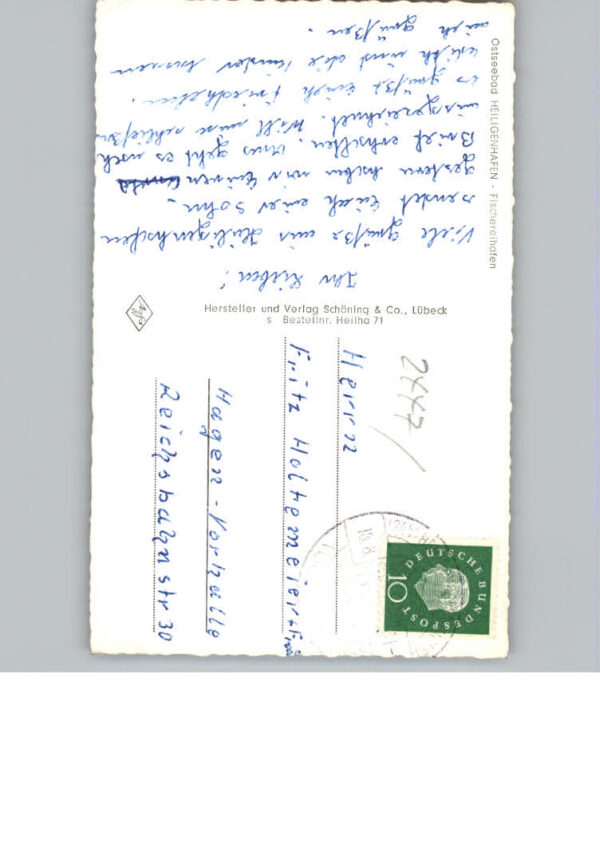 Ostseebad HEILIGENHAFEN - Fischereihafen
Ihr Lieben!
Viele Grüße aus Heiligenhafen
sendet Euch euer Sohn.
gestern haben wir Euren
Brief erhalten. uns geht es noch
ausgezeichnet. Will nun schließen
es grüßt Euch Friedhelm.
und die Kinder lassen
auch grüßen.
Hersteller und Verlag Schöning & Co., Lübeck
s Bestellnr. Heilha 71
2447/
Herrn
Fritz Holtemeier + Frau
Hagen-Vorhalle
Reichsbahnstr 30
DEUTSCHE BUNDESPOST
10